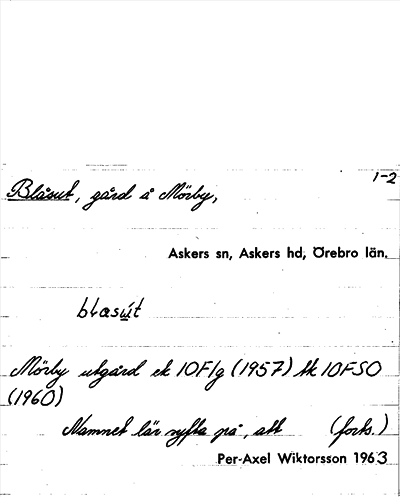 1-2
Blåsut, gård å Mörby,
Askers sn, Askers hd, Örebro län.
blasút
Mörby utgård ek 10F1g (1957) tk 10F SO
(1960)
Namnet lär syfta på, att (forts.)
Per-Axel Wiktorsson 1963